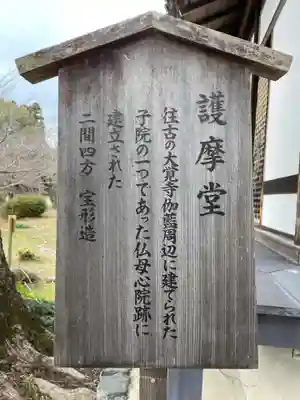 護摩堂
往古の大覚寺伽藍周辺に建てられた
子院の一つであった仏母心院跡に
建立された
二間四方 宝形造